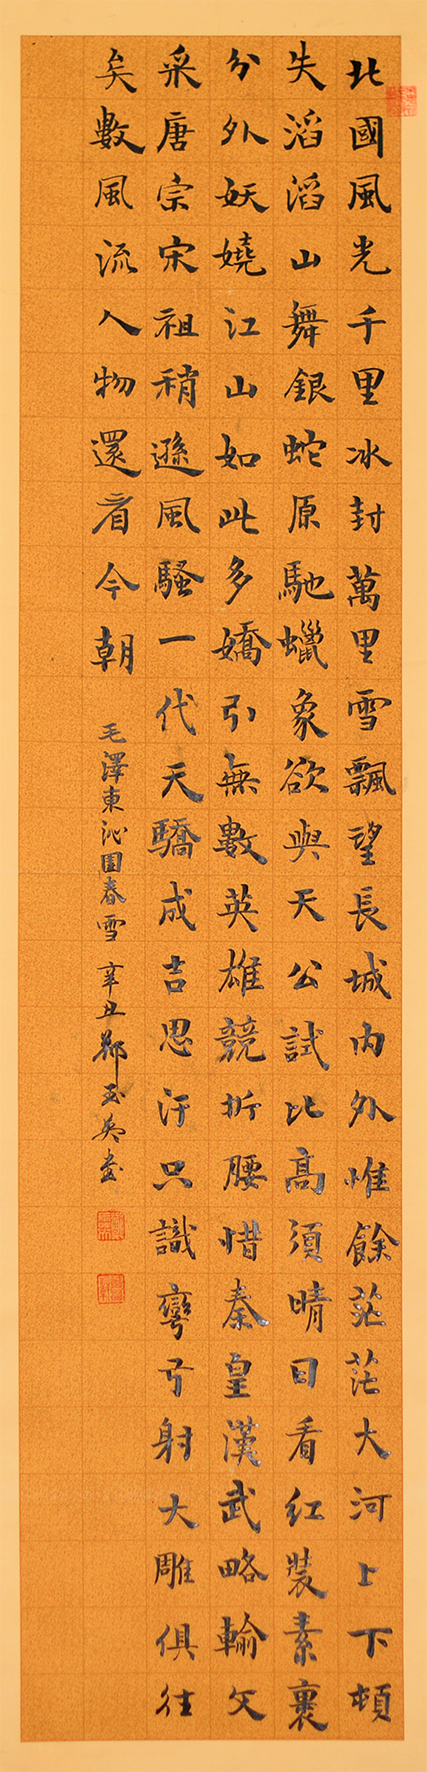 北國風光千里冰封萬里雪飄望長城內外惟餘茫茫大河上下頓
失滔滔山舞銀蛇原馳蠟象欲與天公試比高須晴日看紅裝素裹
分外妖嬈江山如此多嬌引無數英雄競折腰惜秦皇漢武略輸文
采唐宗宋祖稍遜風騷一代天驕成吉思汗只識彎弓射大雕俱往
矣數風流人物還看今朝
毛澤東沁園春雪 辛丑 鄭玉英書